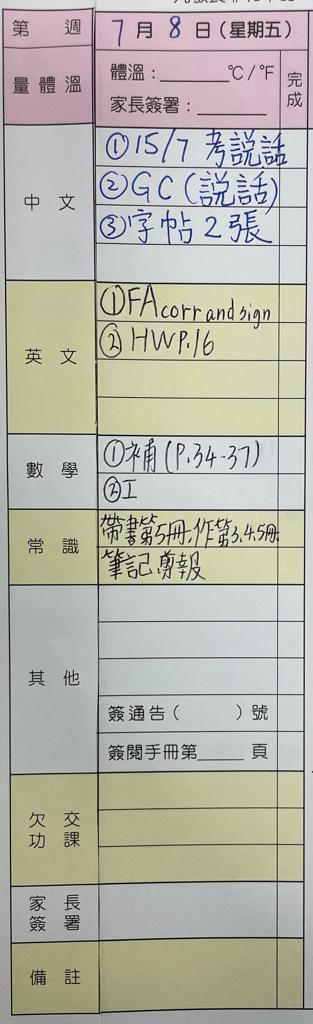 第 週 7月8日(星期五)
量體溫 體溫:______℃/℉ 完成
家長簽署:______
中文 ①15/7 考說話
②GC(說話)
③字帖2張
英文 ①FA corr and sign
②HWP.16
數學 ①補(P.34-37)
②工
常識 帶書第5冊,作第3.4.5冊,
筆記,剪報
其他
簽通告( )號
簽閱手冊第____頁
欠交功課
家長簽署
備註